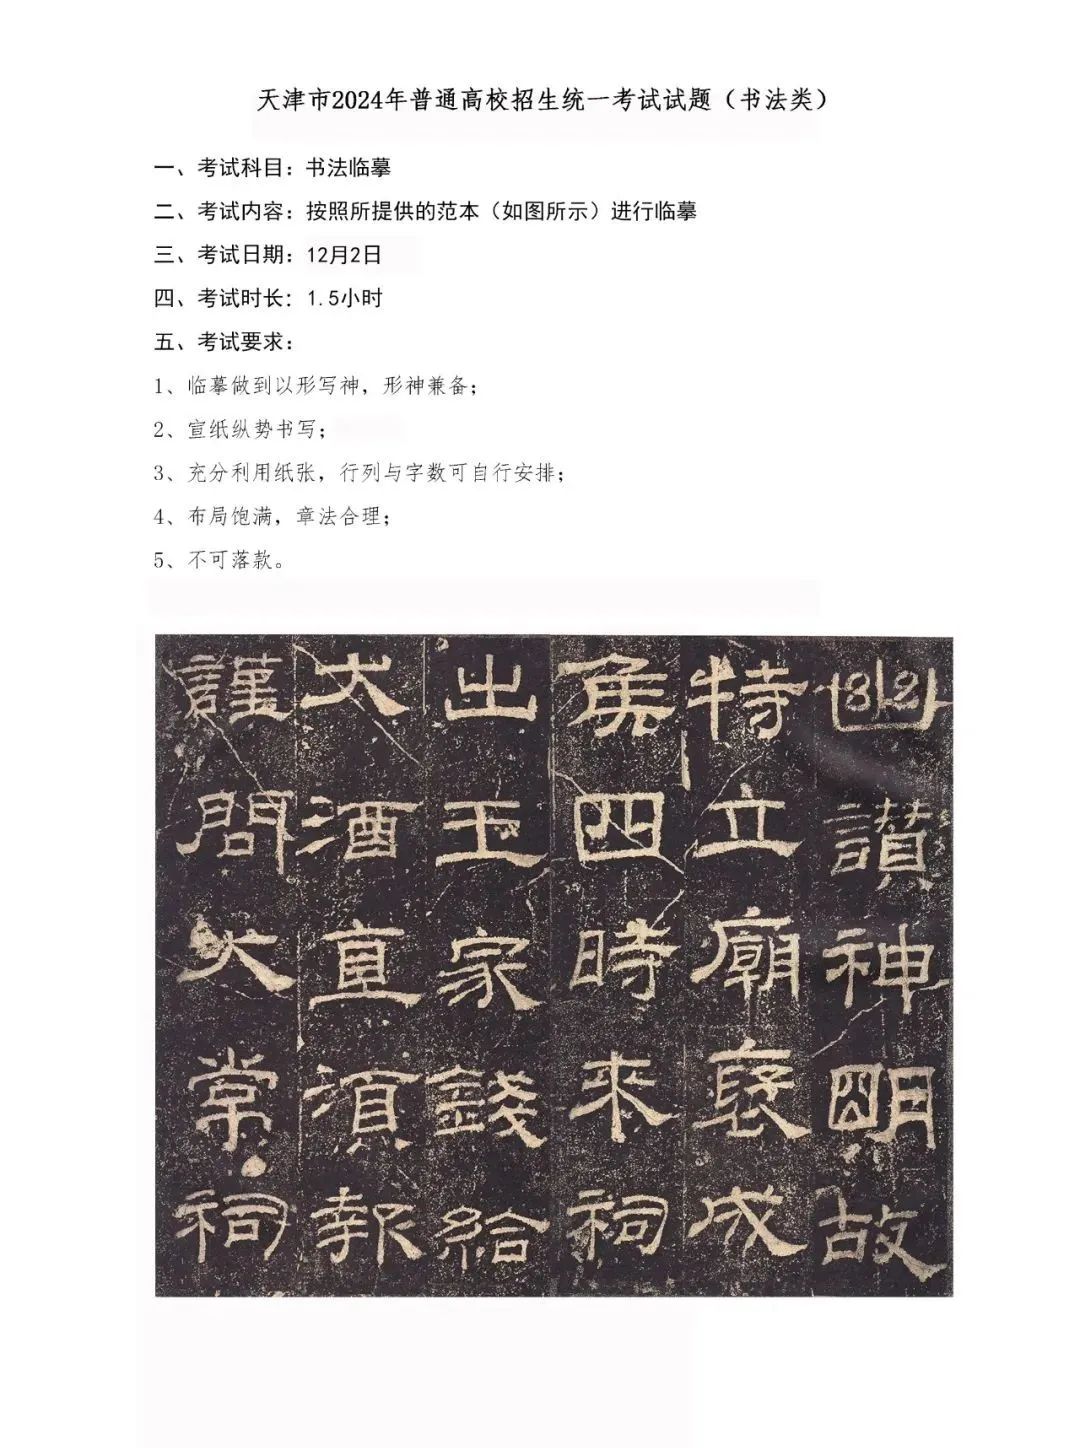 天津市2024年普通高校招生统一考试试题（书法类）
一、考试科目：书法临摹
二、考试内容：按照所提供的范本（如图所示）进行临摹
三、考试日期：12月2日
四、考试时长：1.5小时
五、考试要求：
1、临摹做到以形写神，形神兼备；
2、宣纸纵势书写；
3、充分利用纸张，行列与字数可自行安排；
4、布局饱满，章法合理；
5、不可落款。
幽讃神明故
特立廟褒成
侯四時来祠
出王家錢給
犬酒直須報
謹問大常祠